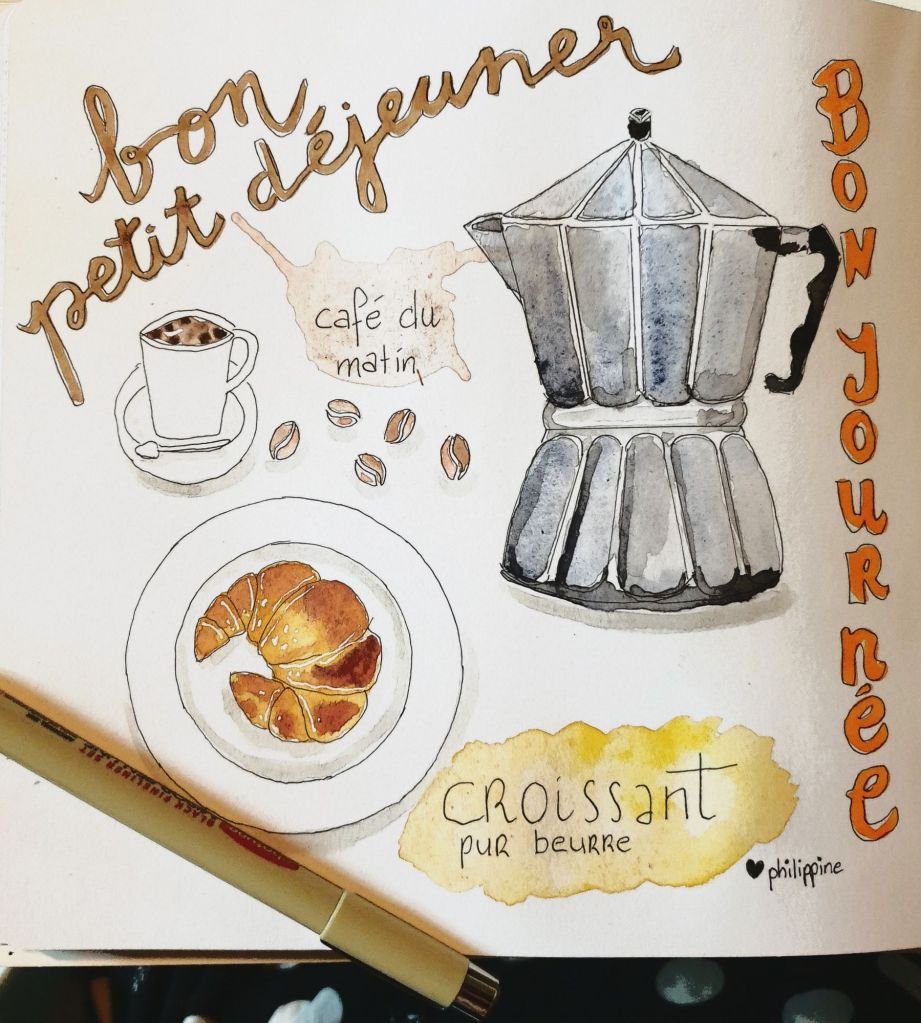 bon
petit déjeuner
café du
matin
BON JOURNée
CROissant
pur beurre
♥ philippine
BLACK FINELINER SET